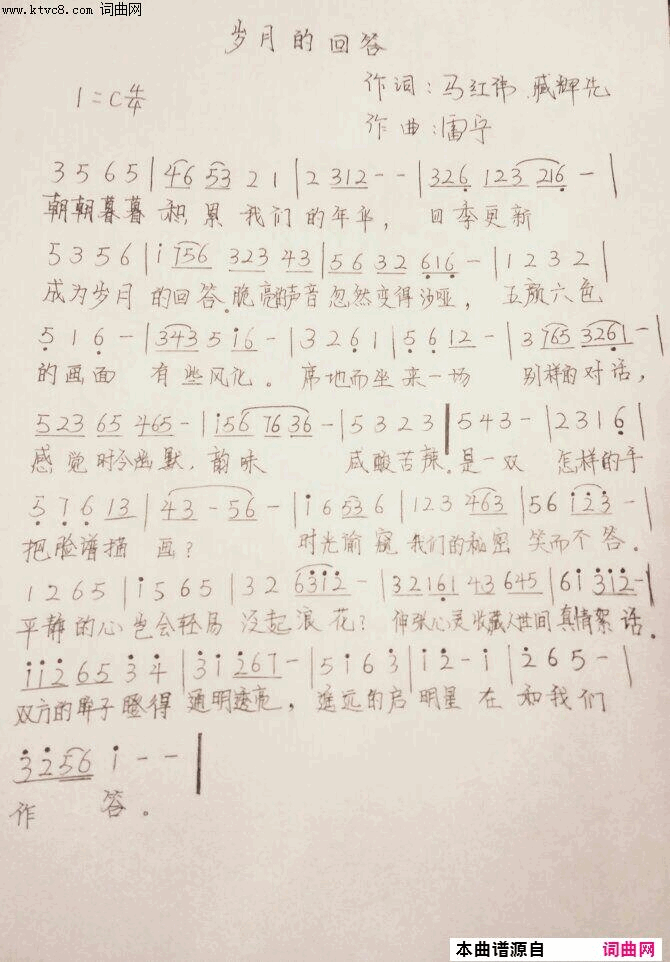 www.ktvc8.com 词曲网
岁月的回答
作词：马红伟 臧辉先
1=C 4/4
作曲：雷宇
3 5 6 5 | 46 53 2 1 | 2 312 - - | 326 123 216 - |
朝朝暮暮 积累 我们的年华， 四季更新
5 3 5 6 | i i56 323 43 | 5 6 32 616 - | 1 2 3 2 |
成为岁月 的回答。脆亮的声音 忽然变得沙哑， 五颜六色
5 1 6 - | 343 5 i6 - | 3 2 6 1 | 5 6 12 - | 3 765 3261 - |
的画面 有些风化。 席地而坐 来一场 别样的对话，
523 65 465 - | i56 76 36 - | 5 3 2 3 | 5 4 3 - | 2 3 1 6 |
感觉时今幽默，韵味 咸酸苦辣。是一双 怎样的手
5 7 6 13 | 43 - 56 - | i 6 53 6 | 1 2 3 463 | 56 i23 - |
把脸谱描 画？ 时光偷窥 我们的秘密 笑而不答。
1 2 6 5 | i 5 6 5 | 3 2 63i2 - | 32161 43 645 | 6i 3i2 - |
平静的心 也会轻易 泛起浪花？ 伸张心灵 收藏人世间 真情絮话。
ii265 34 | 3i 267 - | 5 i 6 3 | i 2 - i | 2 6 5 - |
双方的眸子瞪得 通明透亮， 遥远的启 明星 在 和我们
3256 i - - |
作 答。
本曲谱源自 词曲网